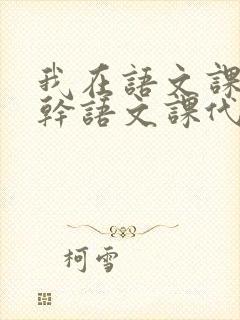 我在語文課
幹語文課代
柯雪